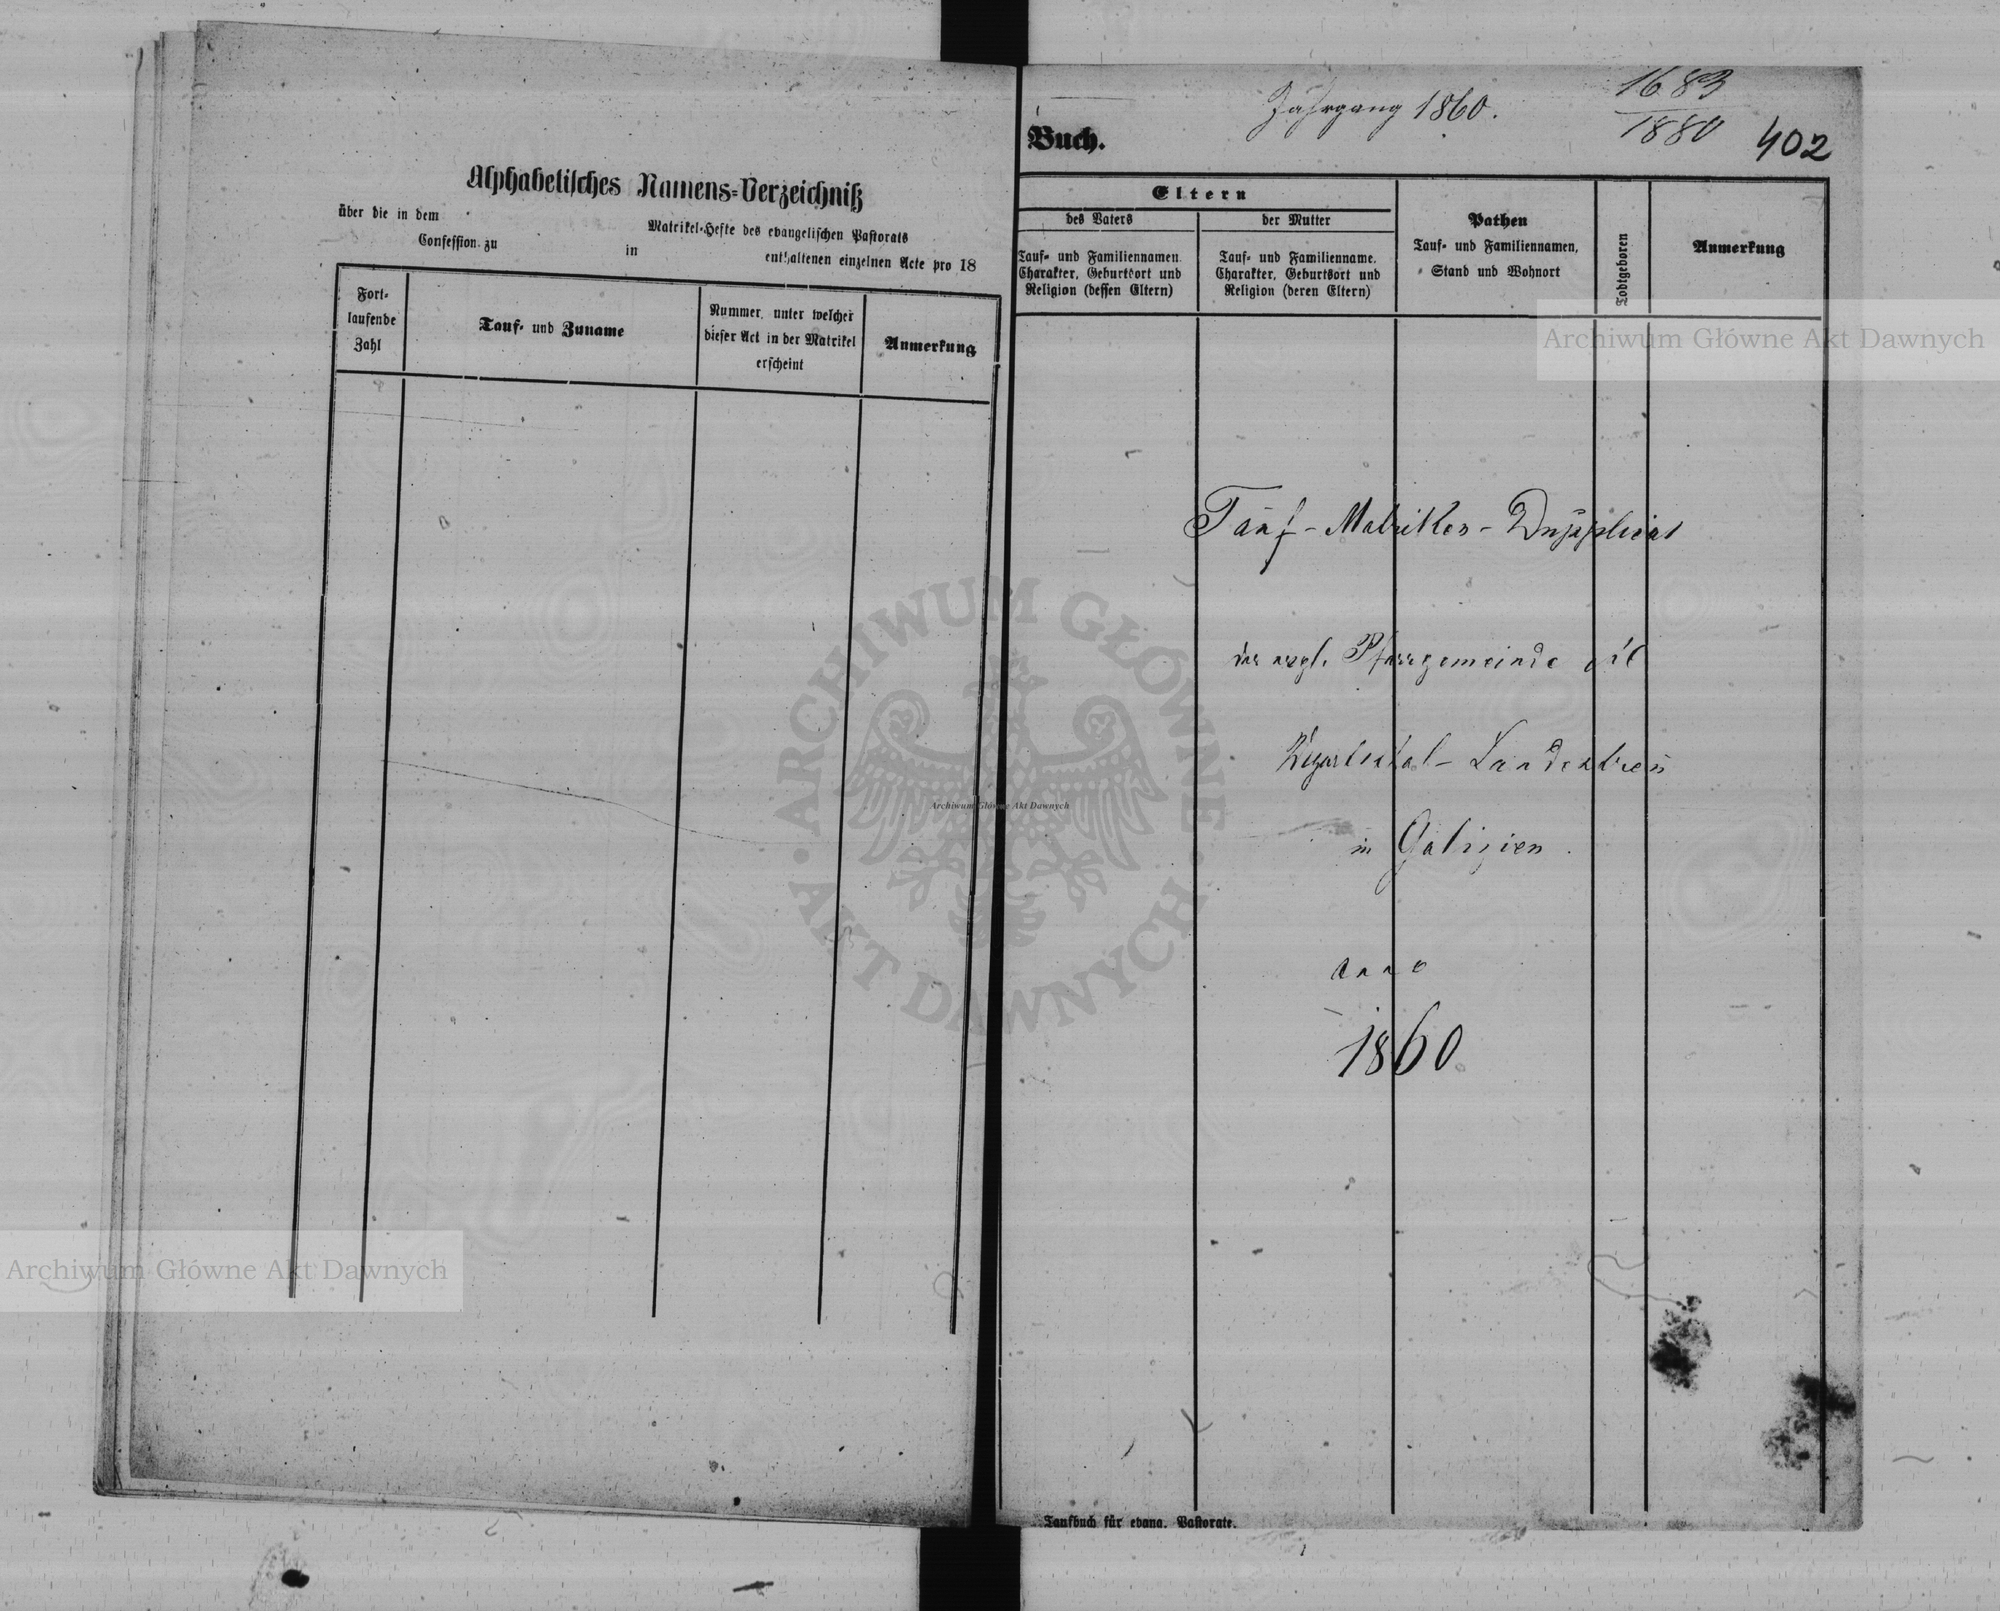 Alphabetisches Namens-Verzeichniß
über die in dem Matrikel-Hefte des evangelischen Pastorats
Confession zu in enthaltenen einzelnen Acte pro 18
Fort-
laufende
Zahl
Tauf- und Zuname
Nummer, unter welcher
dieser Act in der Matrikel
erscheint
Anmerkung
Jahrgang 1860.
1683
1880
402
Buch.
Eltern
des Vaters
der Mutter
Tauf- und Familiennamen.
Charakter, Geburtsort und
Religion (dessen Eltern)
Tauf- und Familienname.
Charakter, Geburtsort und
Religion (deren Eltern)
Pathen
Tauf- und Familiennamen,
Stand und Wohnort
Todtgeboren
Anmerkung
Tauf-Matriken-Dupplicat
der evgl. Pfarrgemeinde
in Galizien.
anno
1860.
Taufbuch für evang. Pastorate.
Archiwum Główne Akt Dawnych
Archiwum Główne Akt Dawnych
Archiwum Główne Akt Dawnych
ARCHIWUM GŁÓWNE AKT DAWNYCH